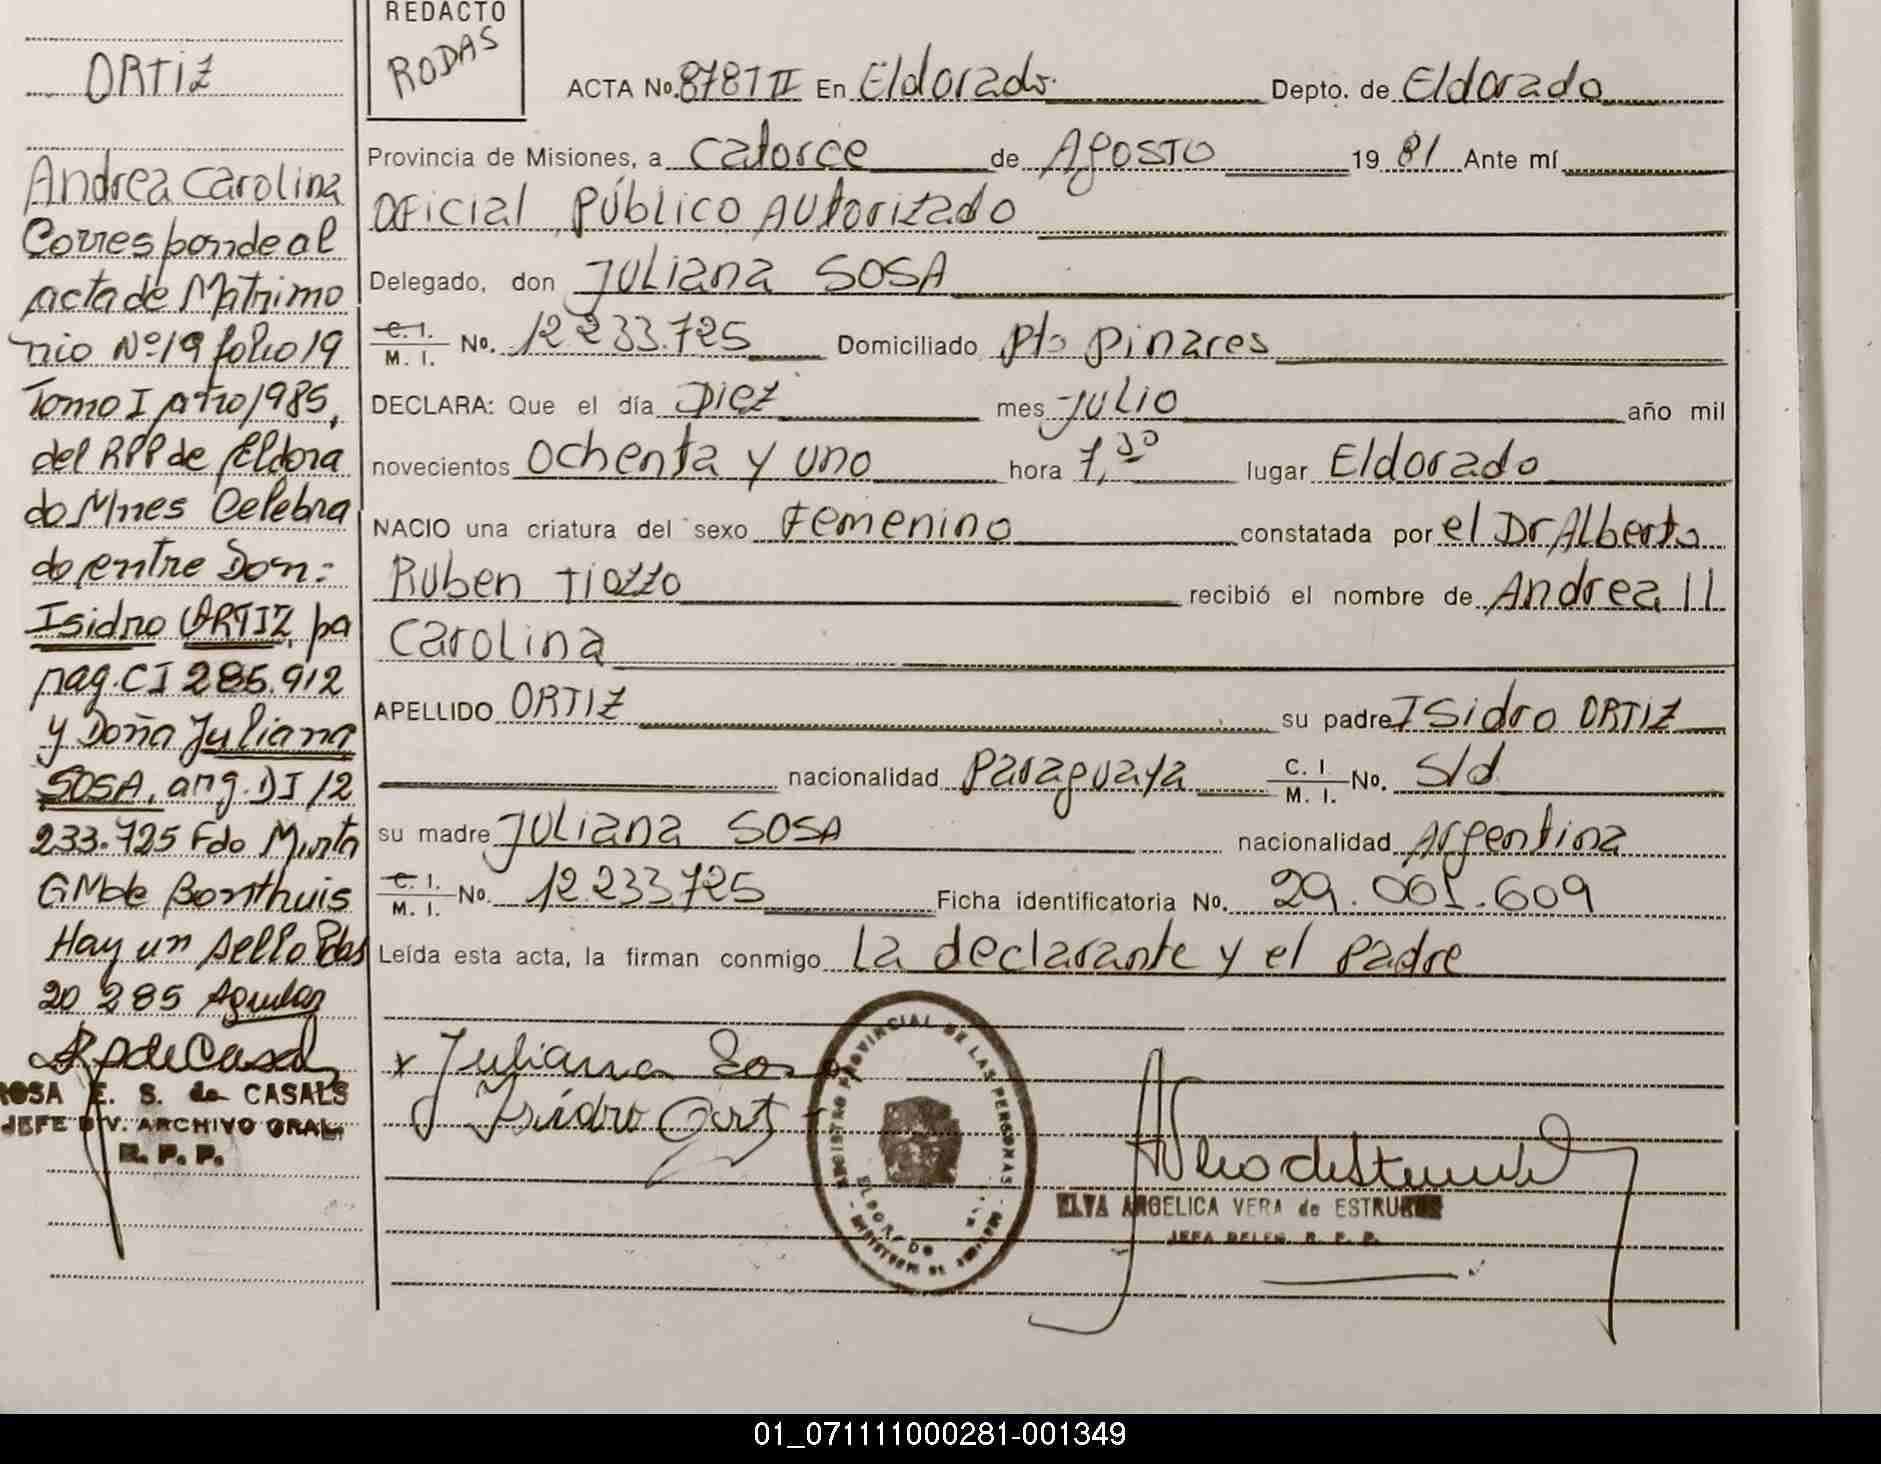 ORTIZ
Andrea Carolina
Corresponde al
acta de Matrimo
nio Nº 19 folio 19
Tomo I año 1985,
del RPP de Eldora
do Mnes Celebra
do entre Don:
Isidro ORTIZ, pa
pag. CI 285.912
y Doña Juliana
SOSA, arg. DI 12
233.725 Fdo Mirta
GM de Bonthuis
Hay un sello Pdas
20 2 85 Aguilar
ROSA E. S. de CASALS
JEFE DIV. ARCHIVO GRAL.
R. P. P.
REDACTO
RODAS
ACTA No. 878 T II En Eldorado Depto. de Eldorado
Provincia de Misiones, a catorce de Agosto 19 81 Ante mí
Oficial Público Autorizado
Delegado, don Juliana SOSA
C. I. M. I. No. 12 233.725 Domiciliado Pto Pinares
DECLARA: Que el día Diez mes Julio año mil
novecientos ochenta y uno hora 7,30 lugar Eldorado
NACIO una criatura del sexo Femenino constatada por el Dr Alberto
Ruben Tiozzo recibió el nombre de Andrea
Carolina
APELLIDO ORTIZ su padre Isidro ORTIZ
nacionalidad Paraguaya C. I. M. I. No. S/d
su madre Juliana SOSA nacionalidad Argentina
C. I. M. I. No. 12.233.725 Ficha identificatoria No. 29.001.609
Leída esta acta, la firman conmigo La declarante y el padre
x Juliana Sosa
Isidro Ortiz
REGISTRO PROVINCIAL DE LAS PERSONAS
ELDORADO
ELVA ANGELICA VERA de ESTRUBES
JEFA DELEG. R. P. P.
01_071111000281-001349